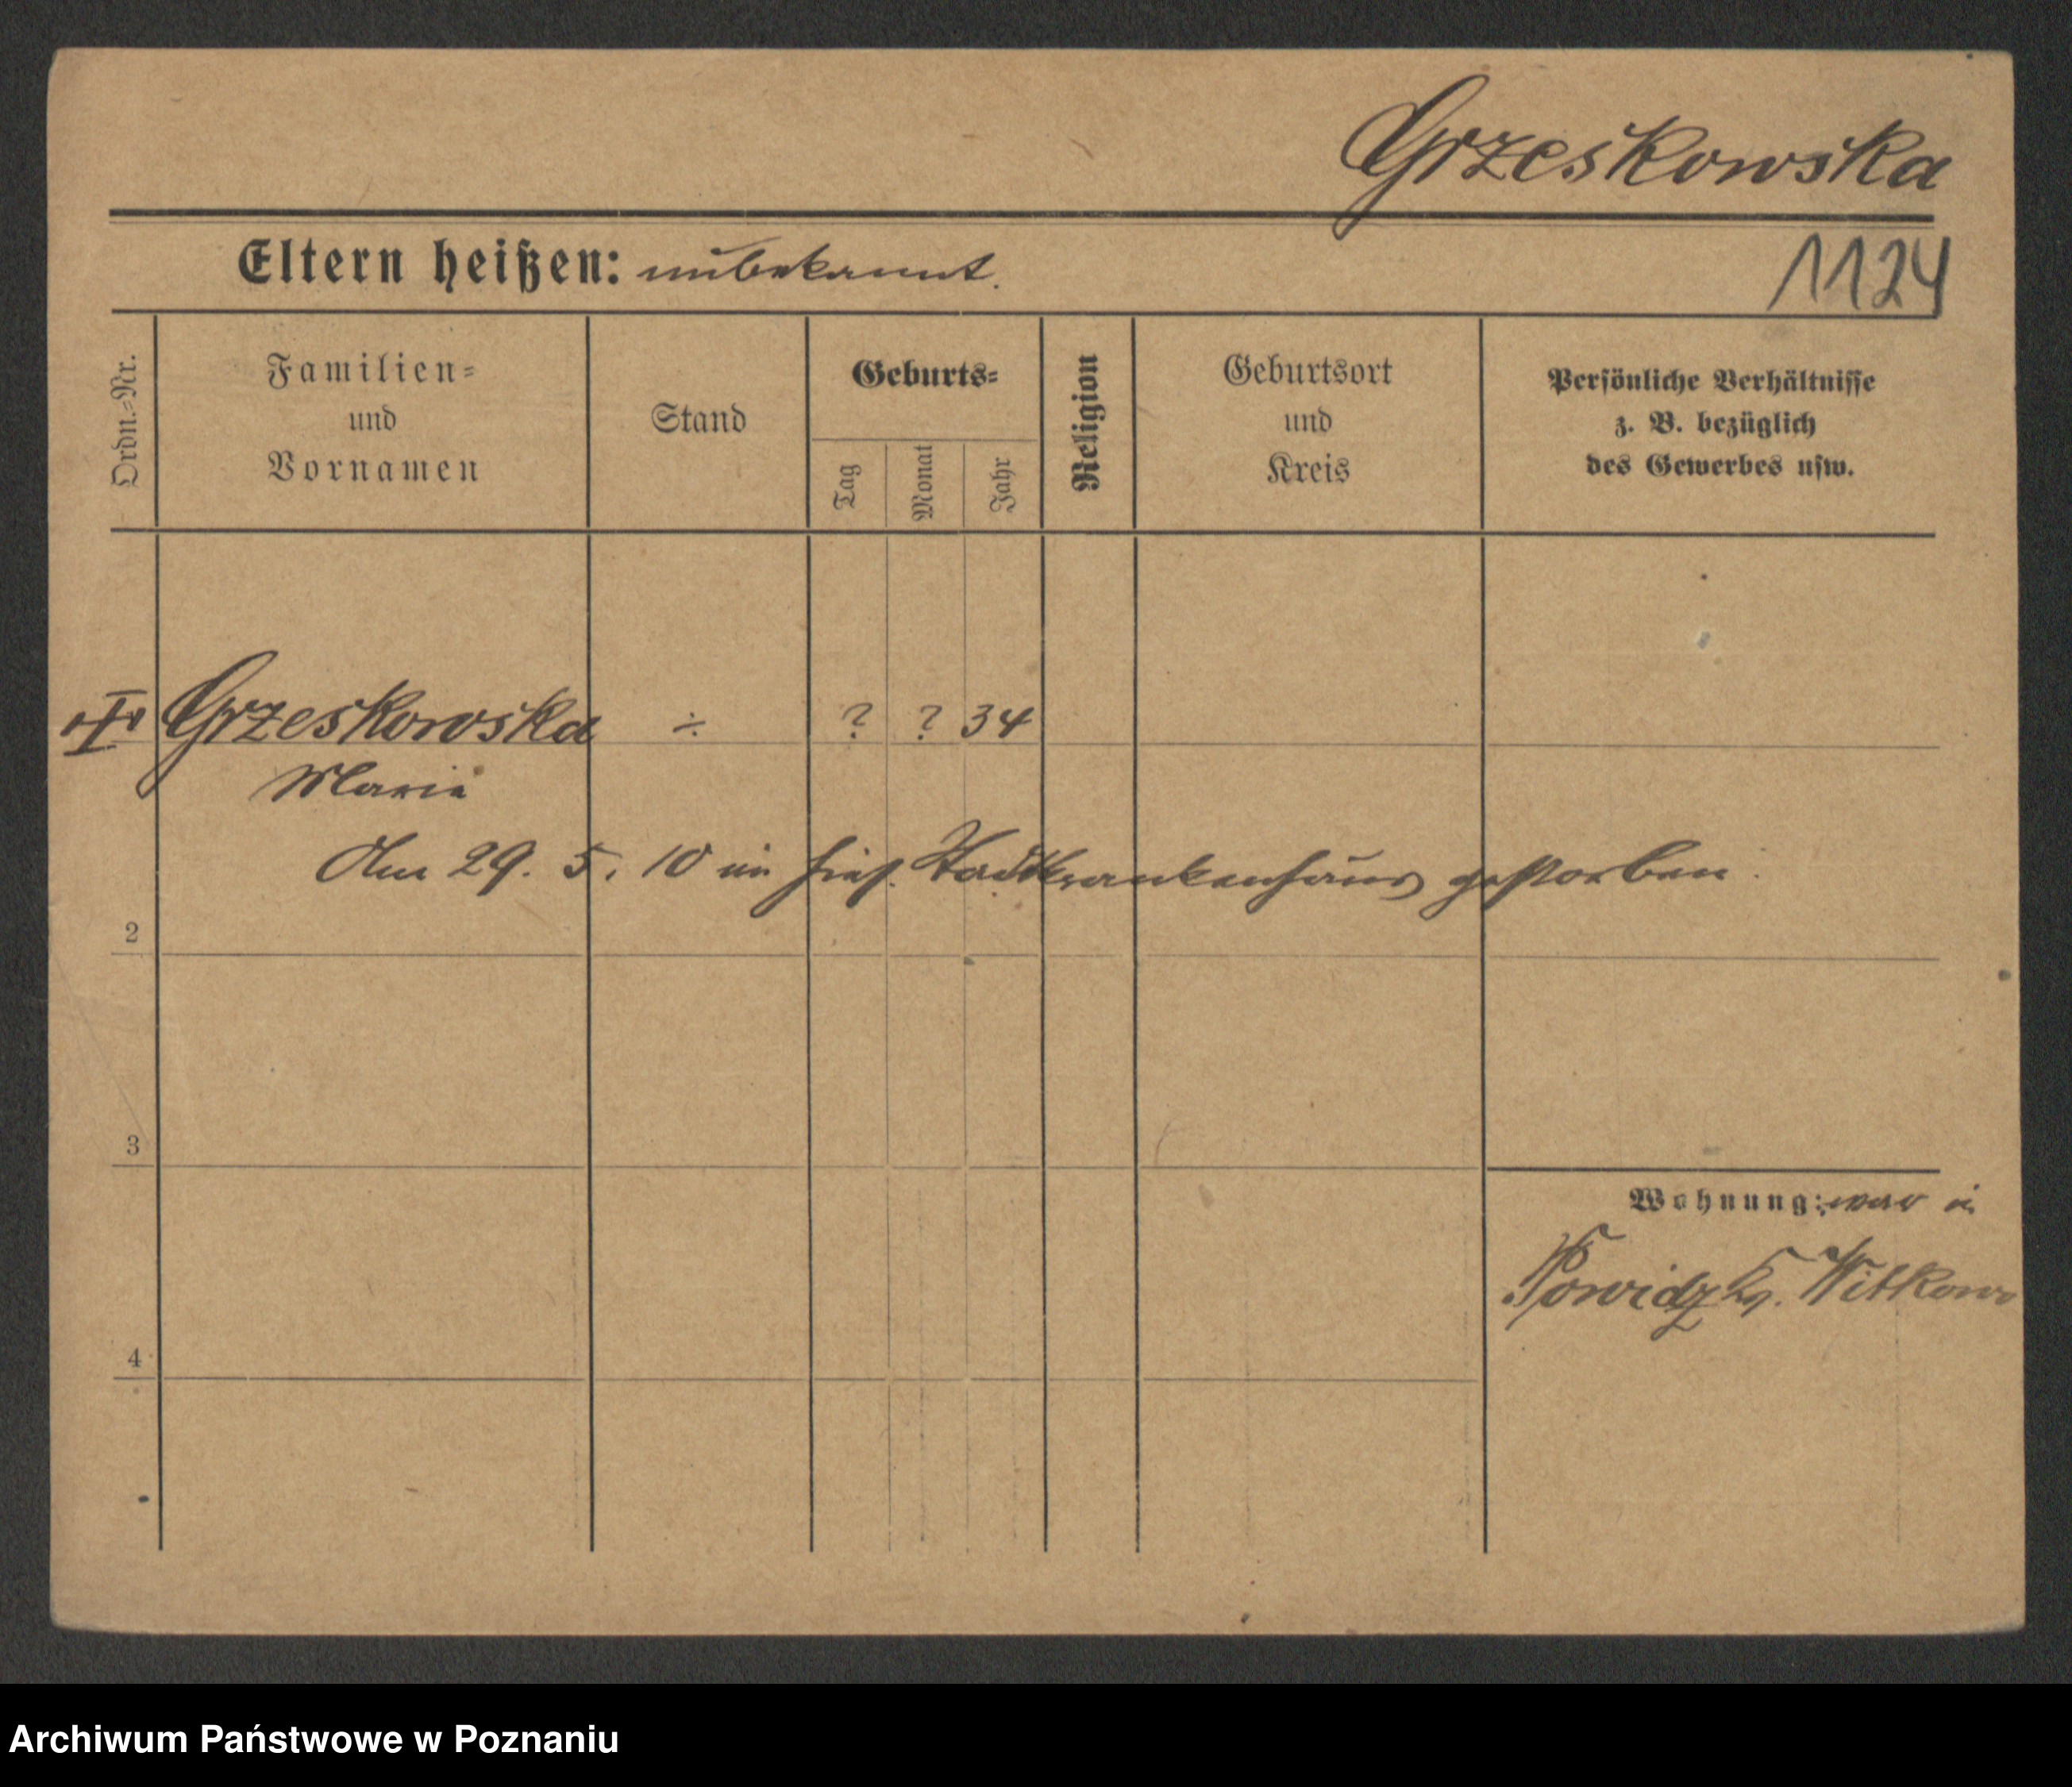 Grzeskowska
Eltern heißen: unbekannt.
1124
Ordn.=Nr.
Familien=
und
Vornamen
Stand
Geburts=
Tag
Monat
Jahr
Religion
Geburtsort
und
Kreis
Persönliche Verhältnisse
z. B. bezüglich
des Gewerbes usw.
Grzeskowska ÷ ? ? 34
Maria
Am 29. 5. 10 im hies. Stadtkrankenhaus gestorben.
2
3
Wohnung: war in
Powidz Kr. Witkowo
4
Archiwum Państwowe w Poznaniu